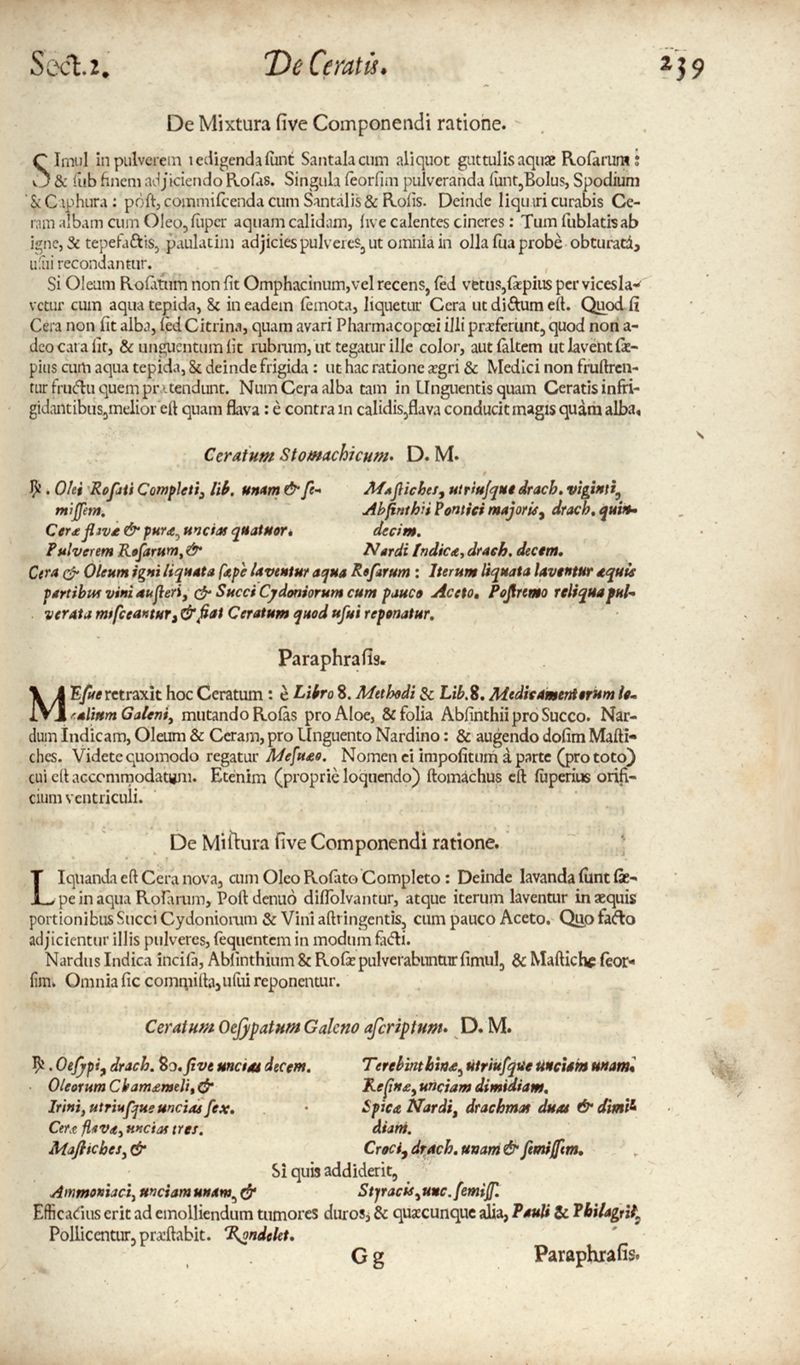 Sect.2. De Ceratis. 239
De Mixtura ſive Componendi ratione.
SImul in pulverem redigenda ſunt Santala cum aliquot guttulis aquæ Roſarum :
& ſub finem adjiciendo Roſas. Singula ſeorſim pulveranda ſunt, Bolus, Spodium
& Caphura : poſt, commiſcenda cum Santalis & Roſis. Deinde liquari curabis Ce-
ram albam cum Oleo, ſuper aquam calidam, ſive calentes cineres : Tum ſublatis ab
igne, & tepefactis, paulatim adjicies pulveres, ut omnia in olla ſua probè obturatâ,
uſui recondantur.
Si Oleum Roſatum non ſit Omphacinum, vel recens, ſed vetus, ſæpius per vices la-
vetur cum aqua tepida, & in eadem ſemota, liquetur Cera ut dictum eſt. Quod ſi
Cera non ſit alba, ſed Citrina, quam avari Pharmacopœi illi præferunt, quod non a-
deo cara ſit, & unguentum ſit rubrum, ut tegatur ille color, aut ſaltem ut lavent ſæ-
pius cum aqua tepida, & deinde frigida : ut hac ratione ægri & Medici non fruſtren-
tur fructu quem prætendunt. Num Cera alba tam in Unguentis quam Ceratis infri-
gidantibus, melior eſt quam flava : è contra in calidis, flava conducit magis quàm alba.
Ceratum Stomachicum. D. M.
℞. Olei Roſati Completi, lib. unam & ſe-
miſſem.
Ceræ flavæ & puræ, uncias quatuor.
Pulverem Roſarum, &
Maſtiches, utriuſque drach. viginti,
Abſinthii Pontici majoris, drach. quin-
decim.
Nardi Indicæ, drach. decem.
Cera & Oleum igni liquata ſæpè laventur aqua Roſarum : Iterum liquata laventur æquis
partibus vini auſteri, & Succi Cydoniorum cum pauco Aceto. Poſtremo reliqua pul-
verata miſceantur, & fiat Ceratum quod uſui reponatur.
Paraphraſis.
MEſue retraxit hoc Ceratum : è Libro 8. Methodi & Lib. 8. Medicamentorum lo-
calium Galeni, mutando Roſas pro Aloe, & folia Abſinthii pro Succo. Nar-
dum Indicam, Oleum & Ceram, pro Unguento Nardino : & augendo doſim Maſti-
ches. Videte quomodo regatur Meſuæo. Nomen ei impoſitum à parte (pro toto)
cui eſt accommodatum. Etenim (propriè loquendo) ſtomachus eſt ſuperius orifi-
cium ventriculi.
De Miſtura ſive Componendi ratione.
LIquanda eſt Cera nova, cum Oleo Roſato Completo : Deinde lavanda ſunt ſæ-
pe in aqua Roſarum, Poſt denuò diſſolvantur, atque iterum laventur in æquis
portionibus Succi Cydoniorum & Vini aſtringentis, cum pauco Aceto. Quo facto
adjicientur illis pulveres, ſequentem in modum facti.
Nardus Indica inciſa, Abſinthium & Roſæ pulverabuntur ſimul, & Maſtiche ſeor-
ſim. Omnia ſic commiſta, uſui reponentur.
Ceratum Oeſypatum Galeno aſcriptum. D. M.
℞. Oeſypi, drach. 80. ſive uncias decem.
Oleorum Chamæmeli, &
Irini, utriuſque uncias ſex.
Ceræ flavæ, uncias tres.
Maſtiches, &
Terebinthinæ, utriuſque unciam unam.
Reſinæ, unciam dimidiam.
Spicæ Nardi, drachmas duas & dimi-
diam.
Croci, drach. unam & ſemiſſem.
Si quis addiderit,
Ammoniaci, unciam unam, & Styracis, unc. ſemiſſ.
Efficacius erit ad emolliendum tumores duros, & quæcunque alia, Pauli & Philagrii,
Pollicentur, præſtabit. Rondelet.
G g Paraphraſis.